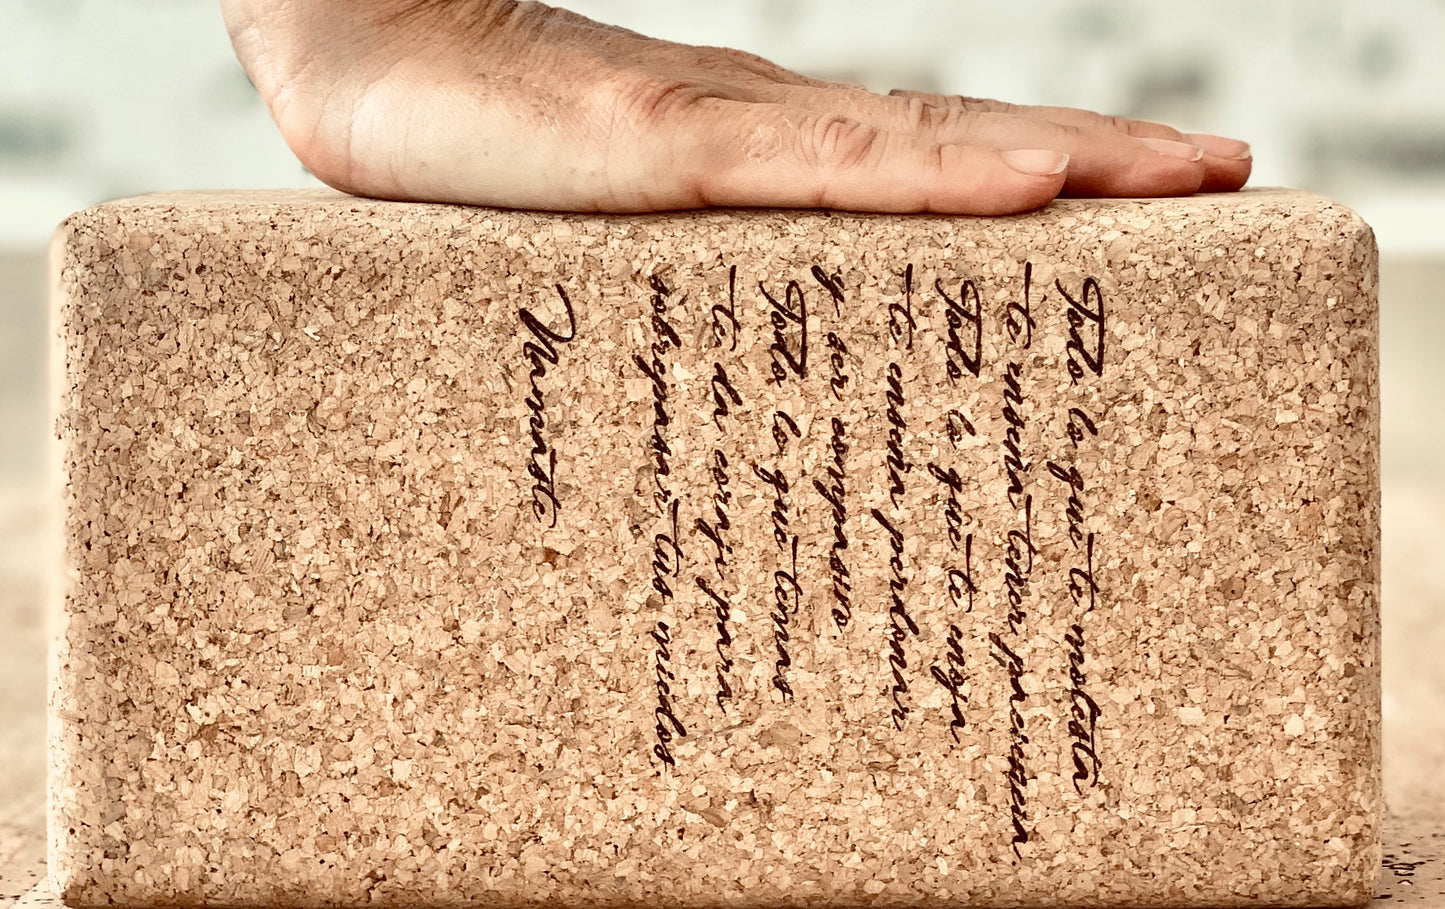 Todo lo que te molesta
te enseña tener paciencia
Todo lo que te enoja
te enseña perdonar
y ser compasivo.
Todo lo que temas
te da coraje para
sobrepasar tus miedos.
Namaste